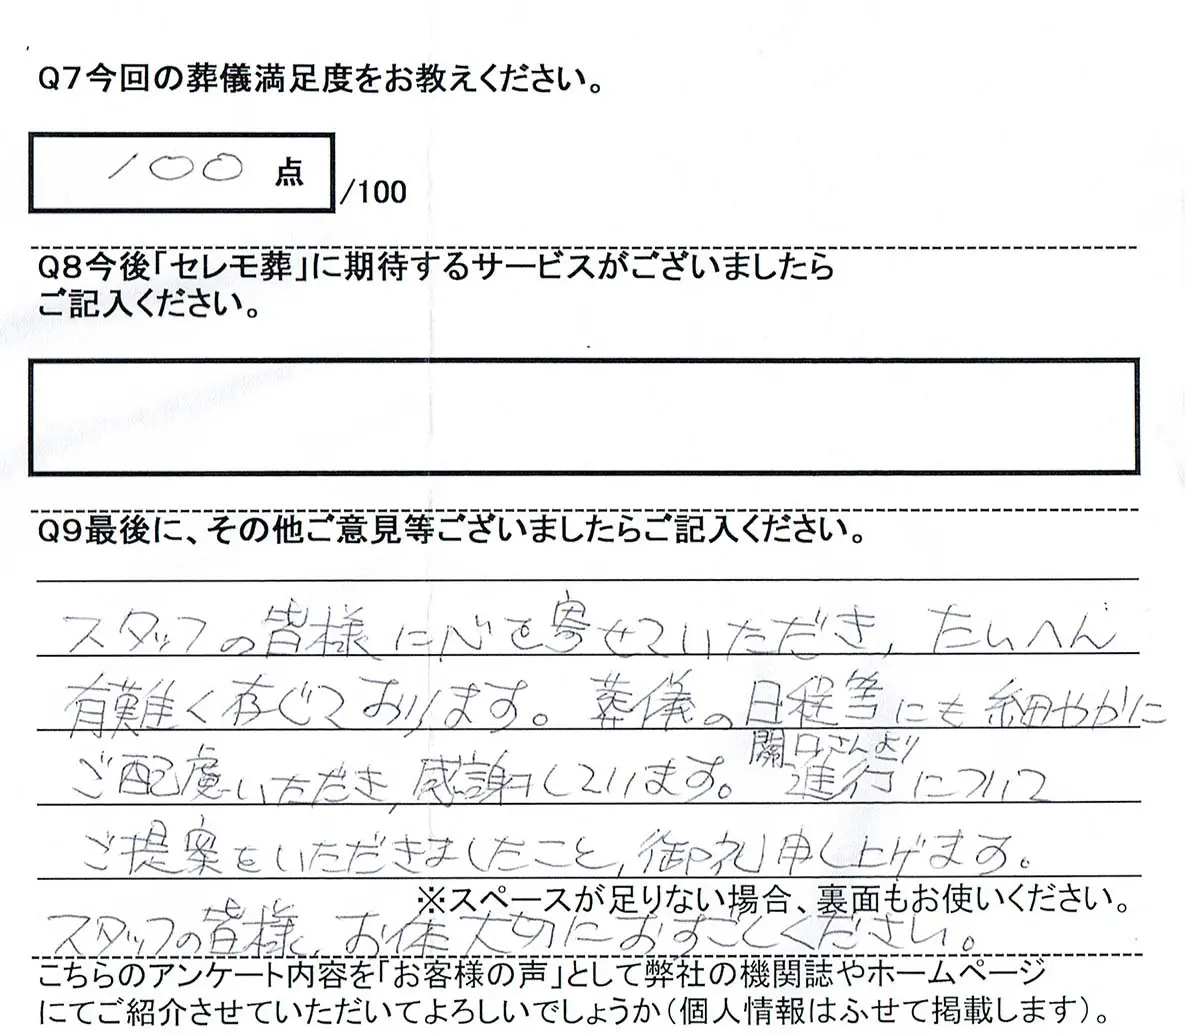 Q7今回の葬儀満足度をお教えください。
100 点
/100
Q8今後「セレモ葬」に期待するサービスがございましたら
ご記入ください。
Q9最後に、その他ご意見等ございましたらご記入ください。
スタッフの皆様に心を寄せていただき，たいへん
有難く存じております。葬儀の日程等にも細やかに
ご配慮いただき，感謝しています。
関口さんより
進行について
ご提案をいただきましたこと，御礼申し上げます。
※スペースが足りない場合、裏面もお使いください。
スタッフの皆様，お体大切におすごしください。
こちらのアンケート内容を「お客様の声」として弊社の機関誌やホームページ
にてご紹介させていただいてよろしいでしょうか（個人情報はふせて掲載します）。